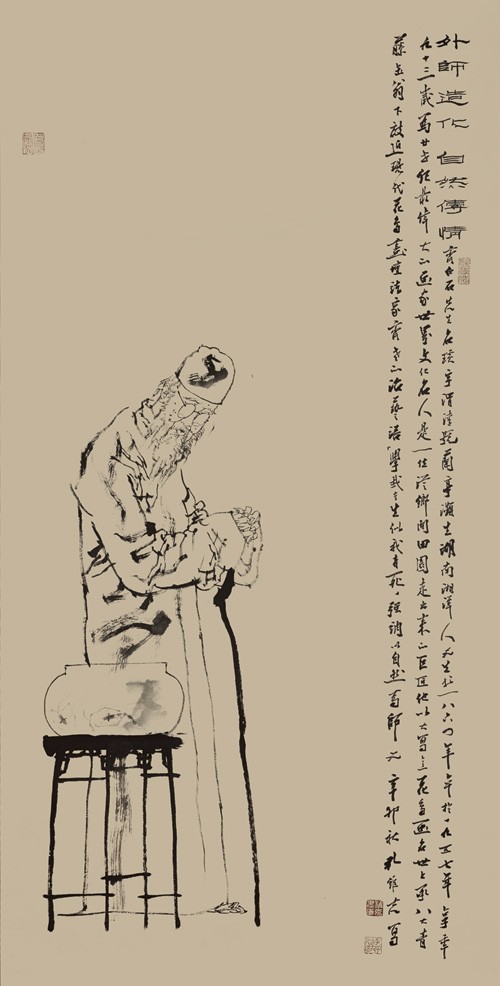 外師造化 自然傳情 齊白石先生名璜字渭清號蘭亭瀕生湖南湘潭人 生於一八六四年卒於一九五七年享年
九十三歲為廿世紀最偉大的畫家世界文化名人是一位從鄉間田園走出來的巨匠他以大寫意花鳥畫名世上承八大青
藤缶翁下啟近現代花鳥畫壇諸家齊老的治藝語「學我者生似我者死」強調以自然為師 辛卯秋孔維克寫